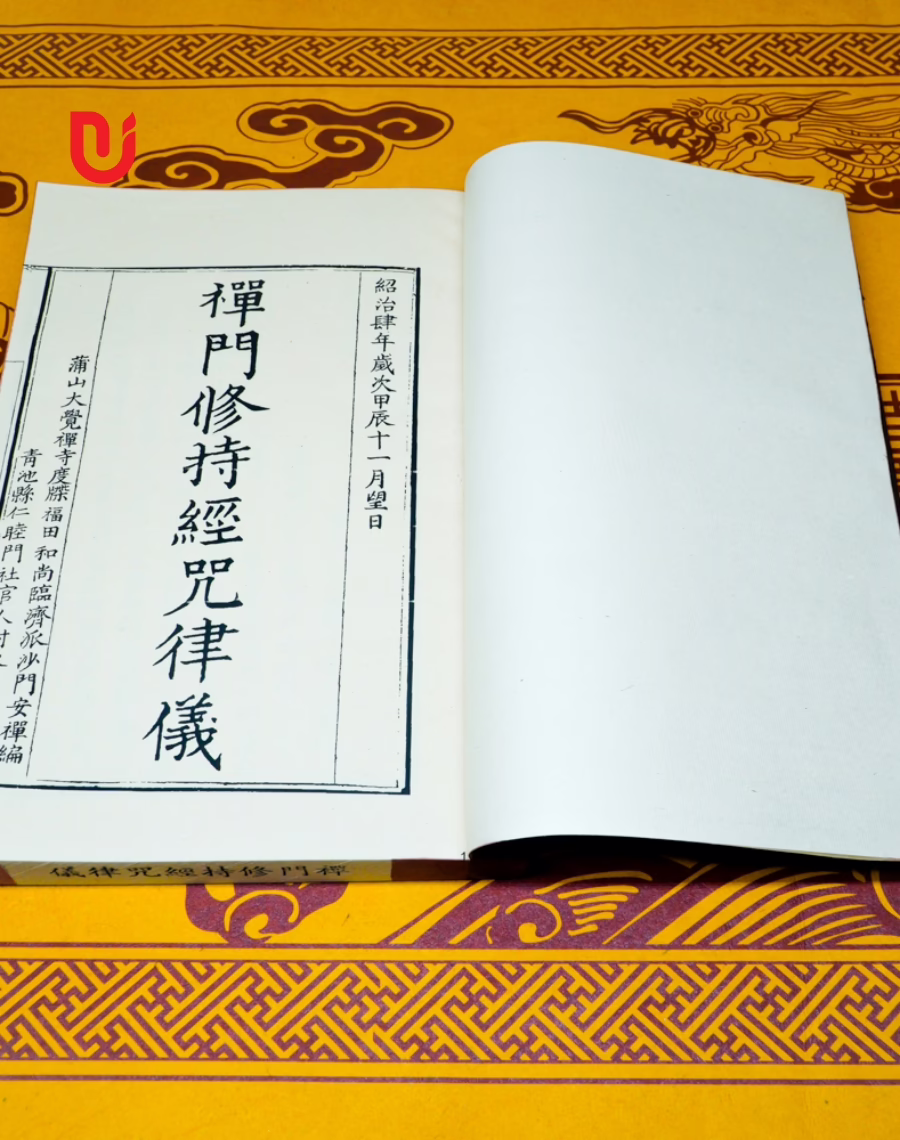 紹治肆年歲次甲辰十一月望日
禪門修持經咒律儀
蒲山大覺禪寺度牒福田和尚臨濟派沙門安禪編
青池縣仁睦門社官人村
禪門修持經咒律儀